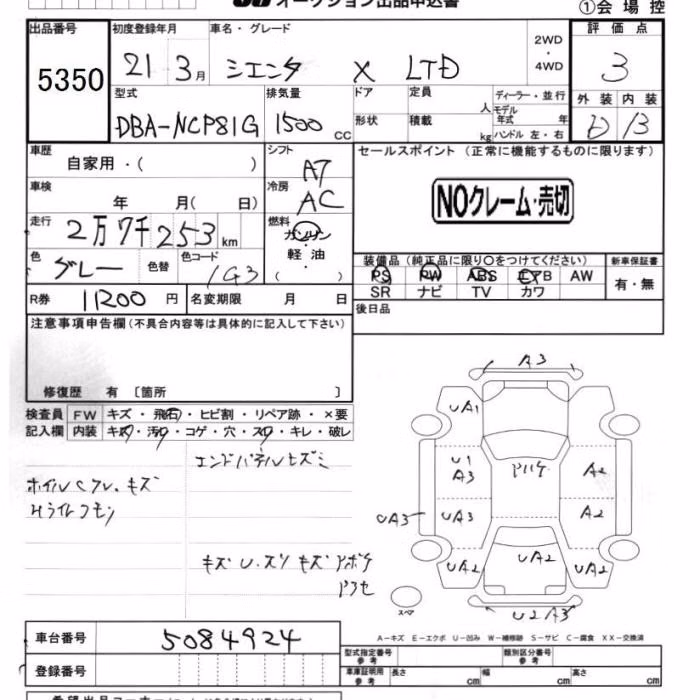 オークション出品申込書
①会場控
出品番号 初度登録年月 車名・グレード 2WD・4WD 評価点
5350 21 3月 シエンタ X LTD 3
型式 排気量 ドア 定員 人 ディーラー・並行 外装 内装
DBA-NCP81G 1500 CC 形状 積載 kg モデル年式 年 ハンドル 左・右 D B
車歴 シフト セールスポイント (正常に機能するものに限ります)
自家用・( ) A7
車検 冷房 NOクレーム・売切
年 月( 日) AC
走行 燃料
2万7千253km ガソリン・軽油
色 色替 色コード ( ) 装備品 (純正品に限り○をつけてください) 新車保証書
グレー 1G3 PS PW ABS エアB AW 有・無
R券 11200 円 名変期限 月 日 SR ナビ TV カワ
注意事項申告欄(不具合内容等は具体的に記入して下さい) 後日品
修復歴 有 〔箇所 〕
検査員 FW キズ・飛石・ヒビ割・リペア跡・×要
記入欄 内装 キズ・汚れ・コゲ・穴・スレ・キレ・破レ
ホイルCフレ、キズ
A3
UA1
U1
A3
A2
UA3
UA3
A2
UA2
UA2
UA2
スペア
U2A3
A-キズ E-エクボ U-凹み W-補修跡 S-サビ C-腐食 XX-交換済
車台番号 5084924
登録番号
型式指定番号 参考 類別区分番号 参考
車庫証明用 参考 長さ cm 幅 cm 高さ cm